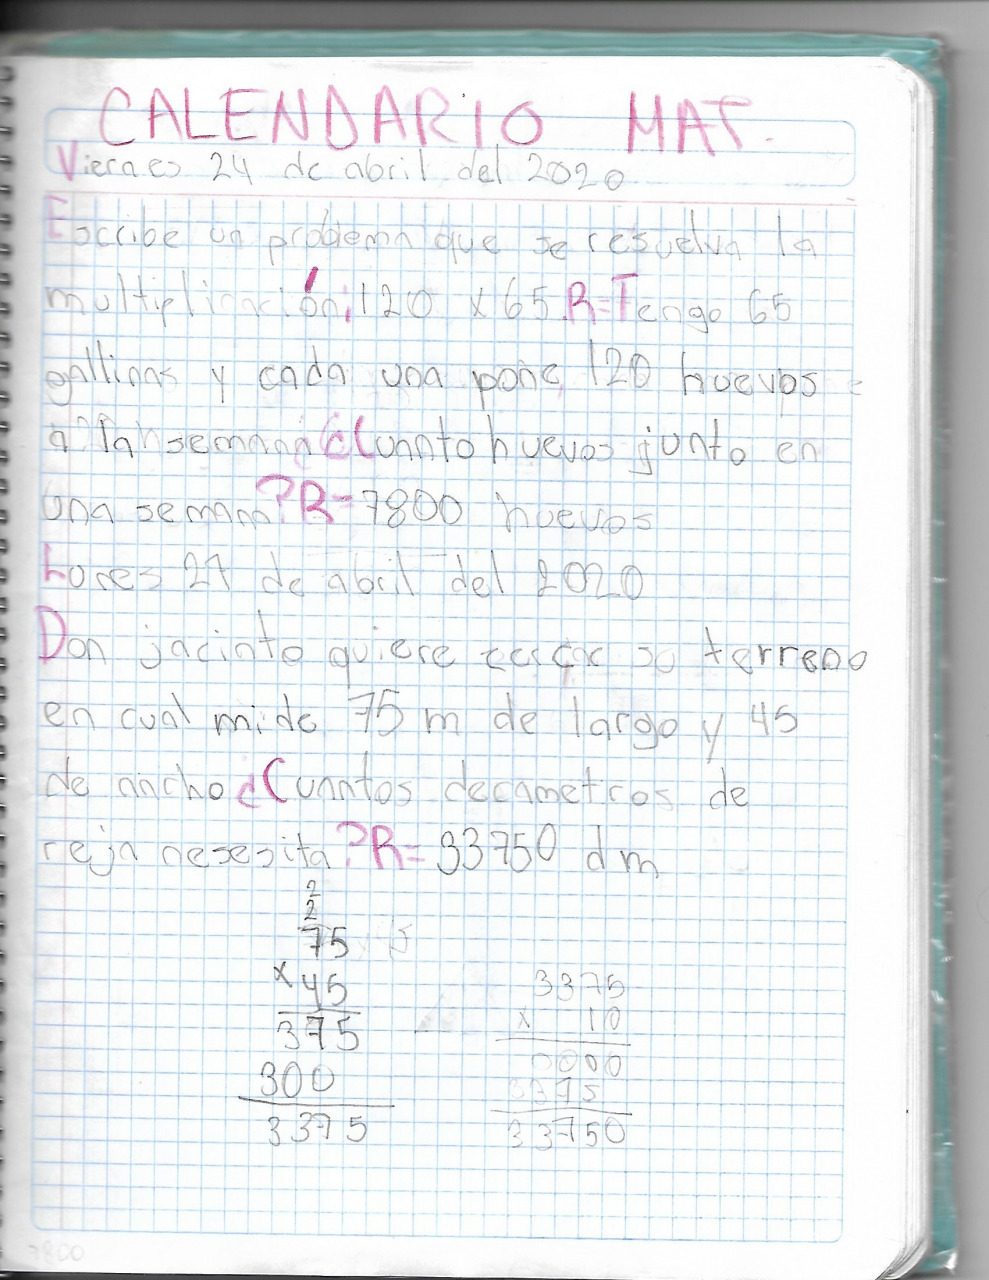 CALENDARIO MAT.
Viernes 24 de abril del 2020
Escribe un problema que se resuelva la
multiplicación: 120 x 65. R=Tengo 65
gallinas y cada una pone 120 huevos
a la semana ¿Cuanto huevos junto en
una semana? R=7800 huevos
Lunes 27 de abril del 2020
Don jacinto quiere cercar su terreno
en cual mide 75 m de largo y 45
de ancho ¿Cuantos decametros de
reja nesesita? R= 33750 dm
2
2
75
x 45
375
300
3375
3375
x 10
0000
3375
33750
7800